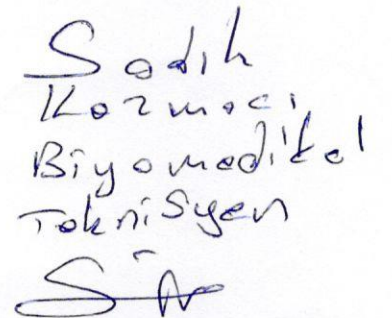 Sadık
Kazmacı
Biyomedikal
Teknisyen